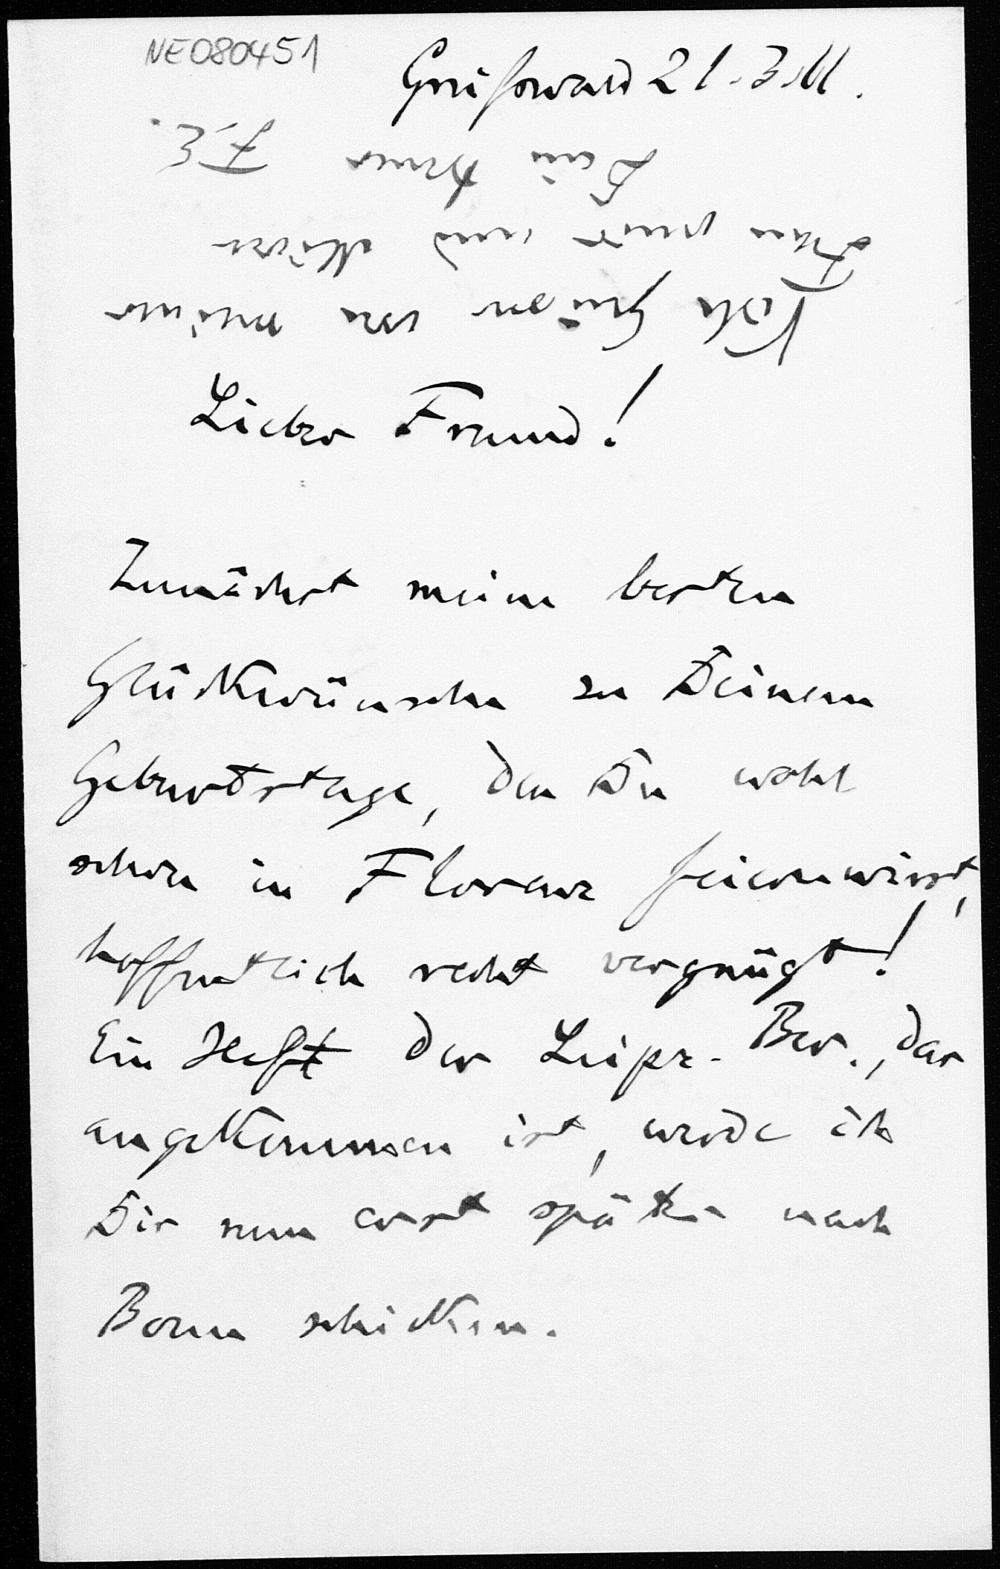 NE080451
Greifswald 21.3.11.
Lieber Freund!
Zunächst meine besten
Glückwünsche zu Deinem
Geburtstage, den Du wohl
schon in Florenz feiern wirst,
hoffentlich recht vergnügt!
Ein Heft der Leipz. Ber., das
angekommen ist, werde ich
Dir nun erst später nach
Bonn schicken.
Viele Grüsse von meiner
Frau und
Dein treuer F. E.